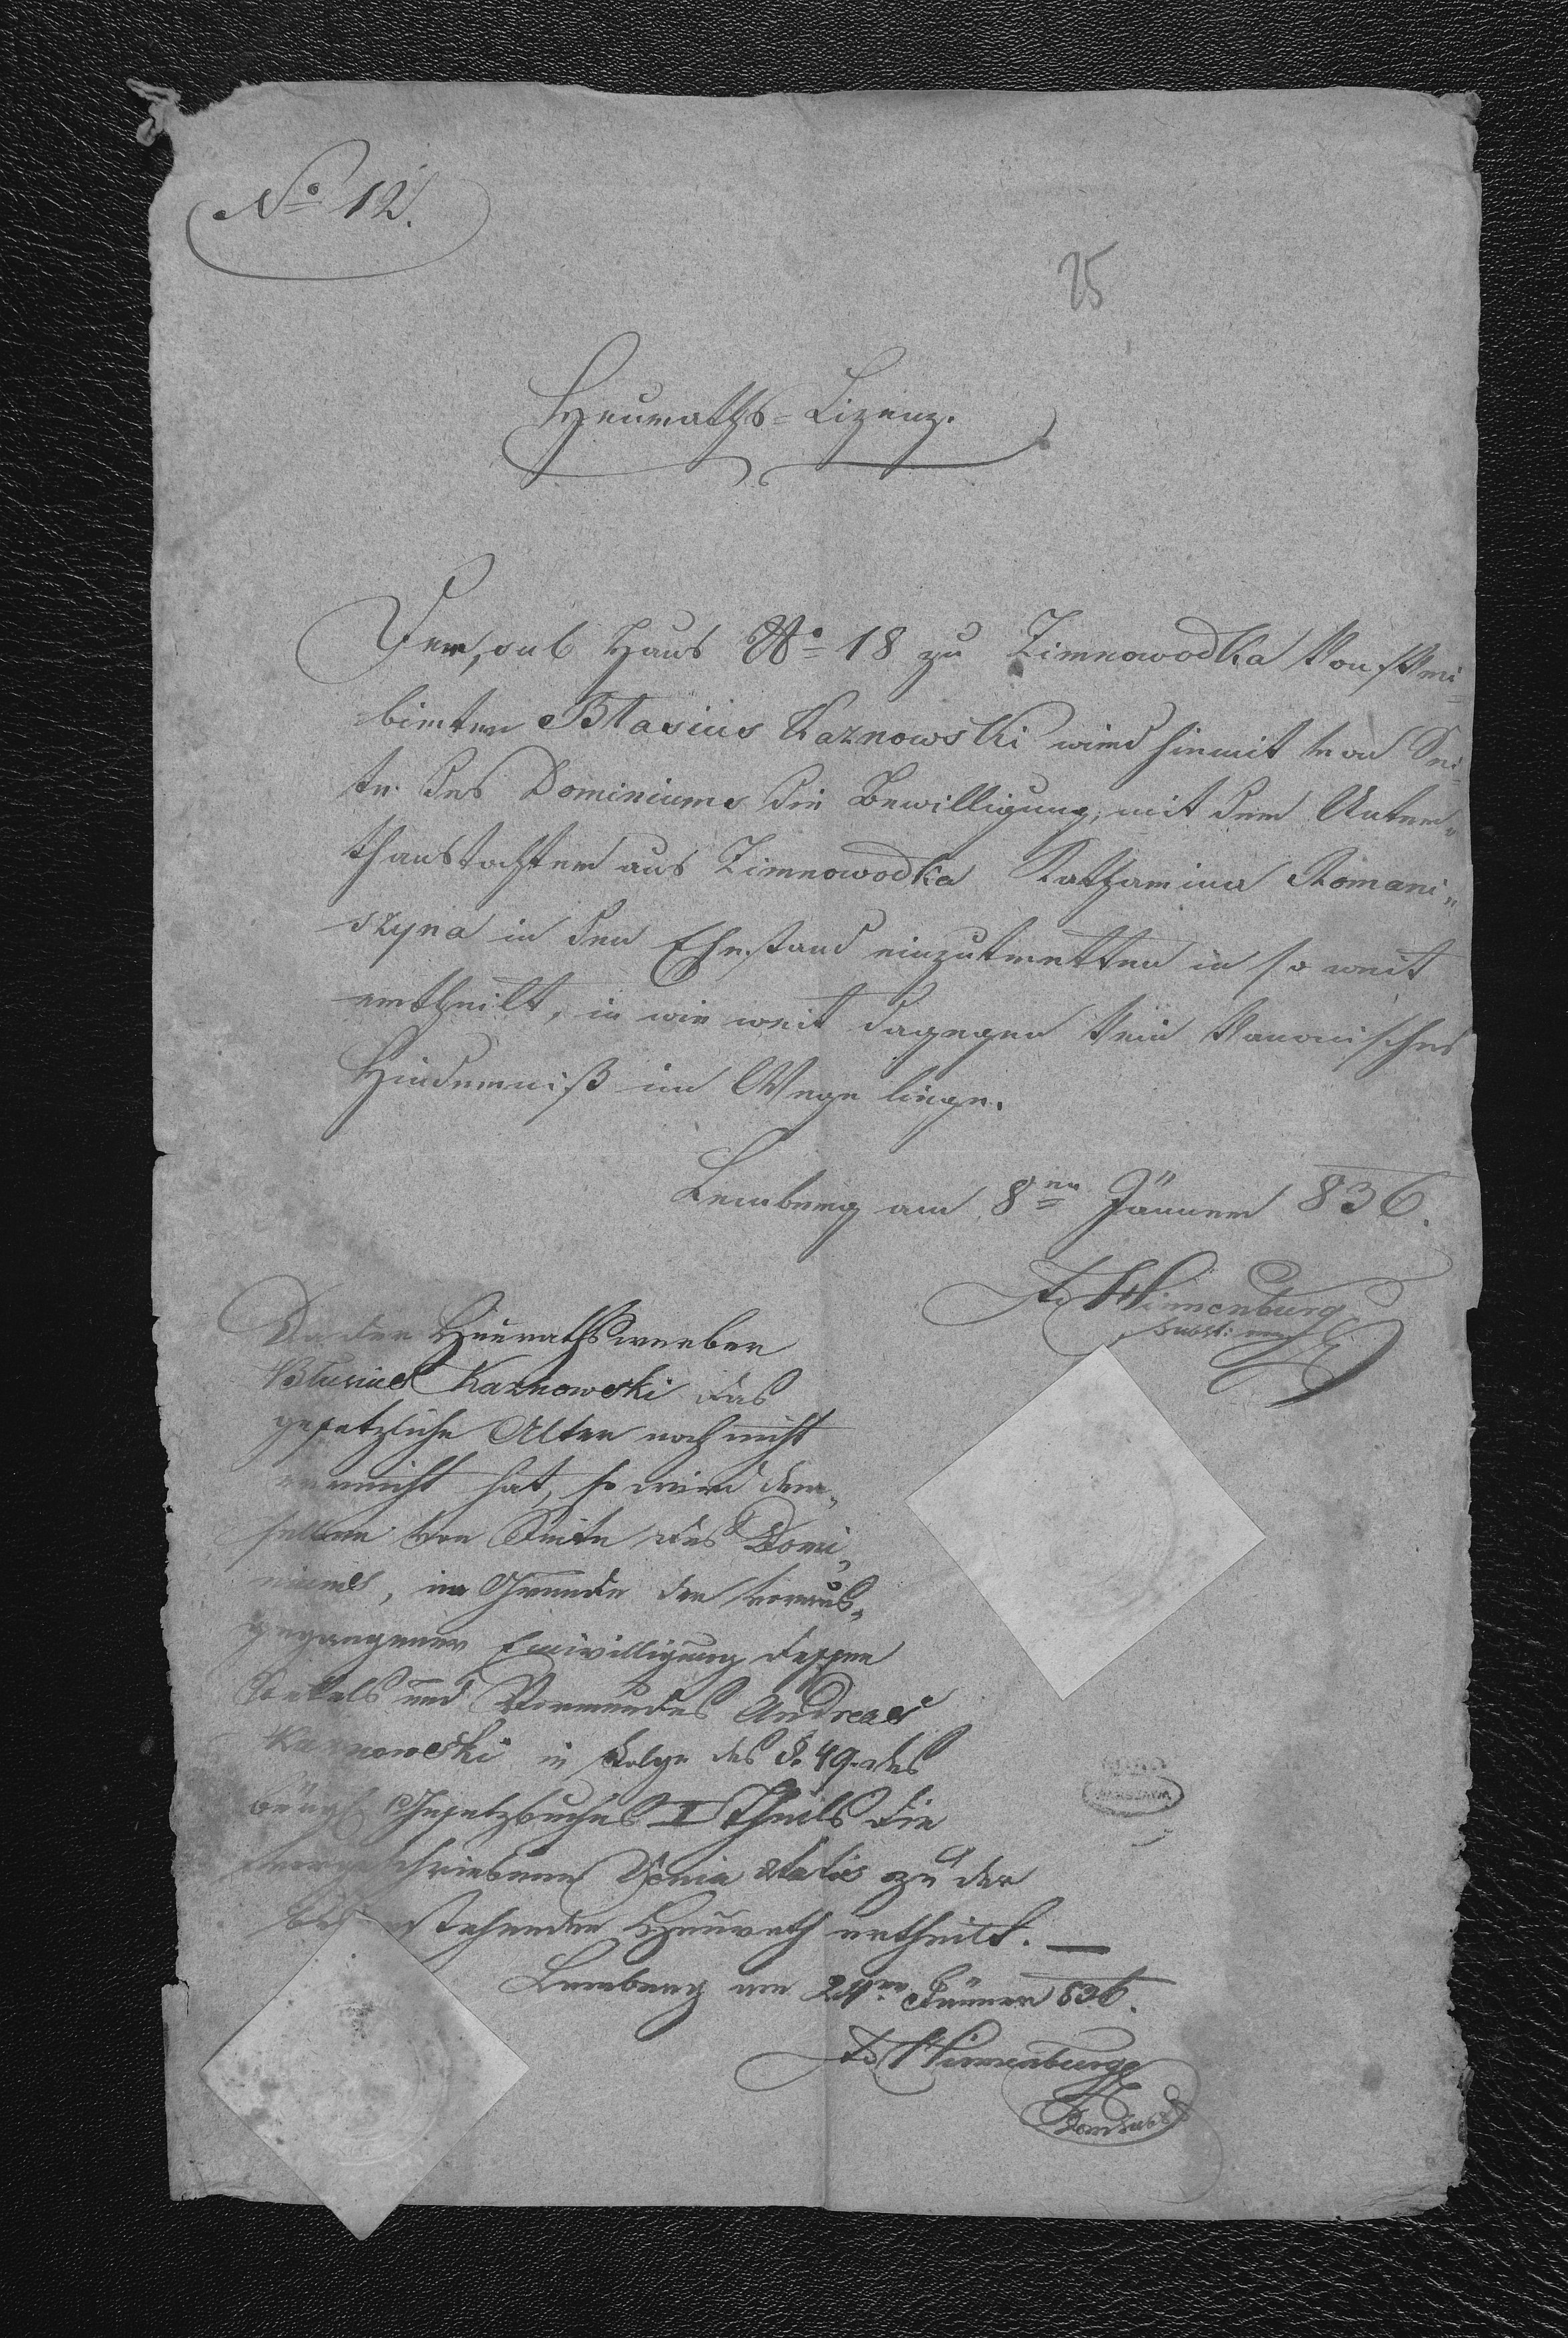 No 12.
25
Heuraths=Lizenz.
Dem, sub Haus No 18 zu Zimnowodka Konskri=
birten Blasius Kaznowski wird hiemit von Sei=
te des Dominiums die Bewilligung, mit der Unter=
thanstochter aus Zimnowodka Katharina Romani=
szyna in den Ehestand einzutretten in so weit
ertheilt, in wie weit dagegen kein kanonisches
Hinderniß im Wege liege.
Lemberg am 8ten Jänner 836.
Winnenburg
Da der Heurathswerber
Blasius Kaznowski das
gesetzliche Alter noch nicht
erreicht hat, so wird dem=
selben von Seite des Domi=
niums, im Grunde der voraus=
gegangenen Einwilligung dessen
und Vormundes Andreas
Kaznowski in Folge des §. 49. des
bürgl Gesetzbuches I Theils die
vorgeschriebene Venia aetatis zu der
bevorstehenden Heurath ertheilt. —
Lemberg am 24ten Jänner 836.
Winnenburg